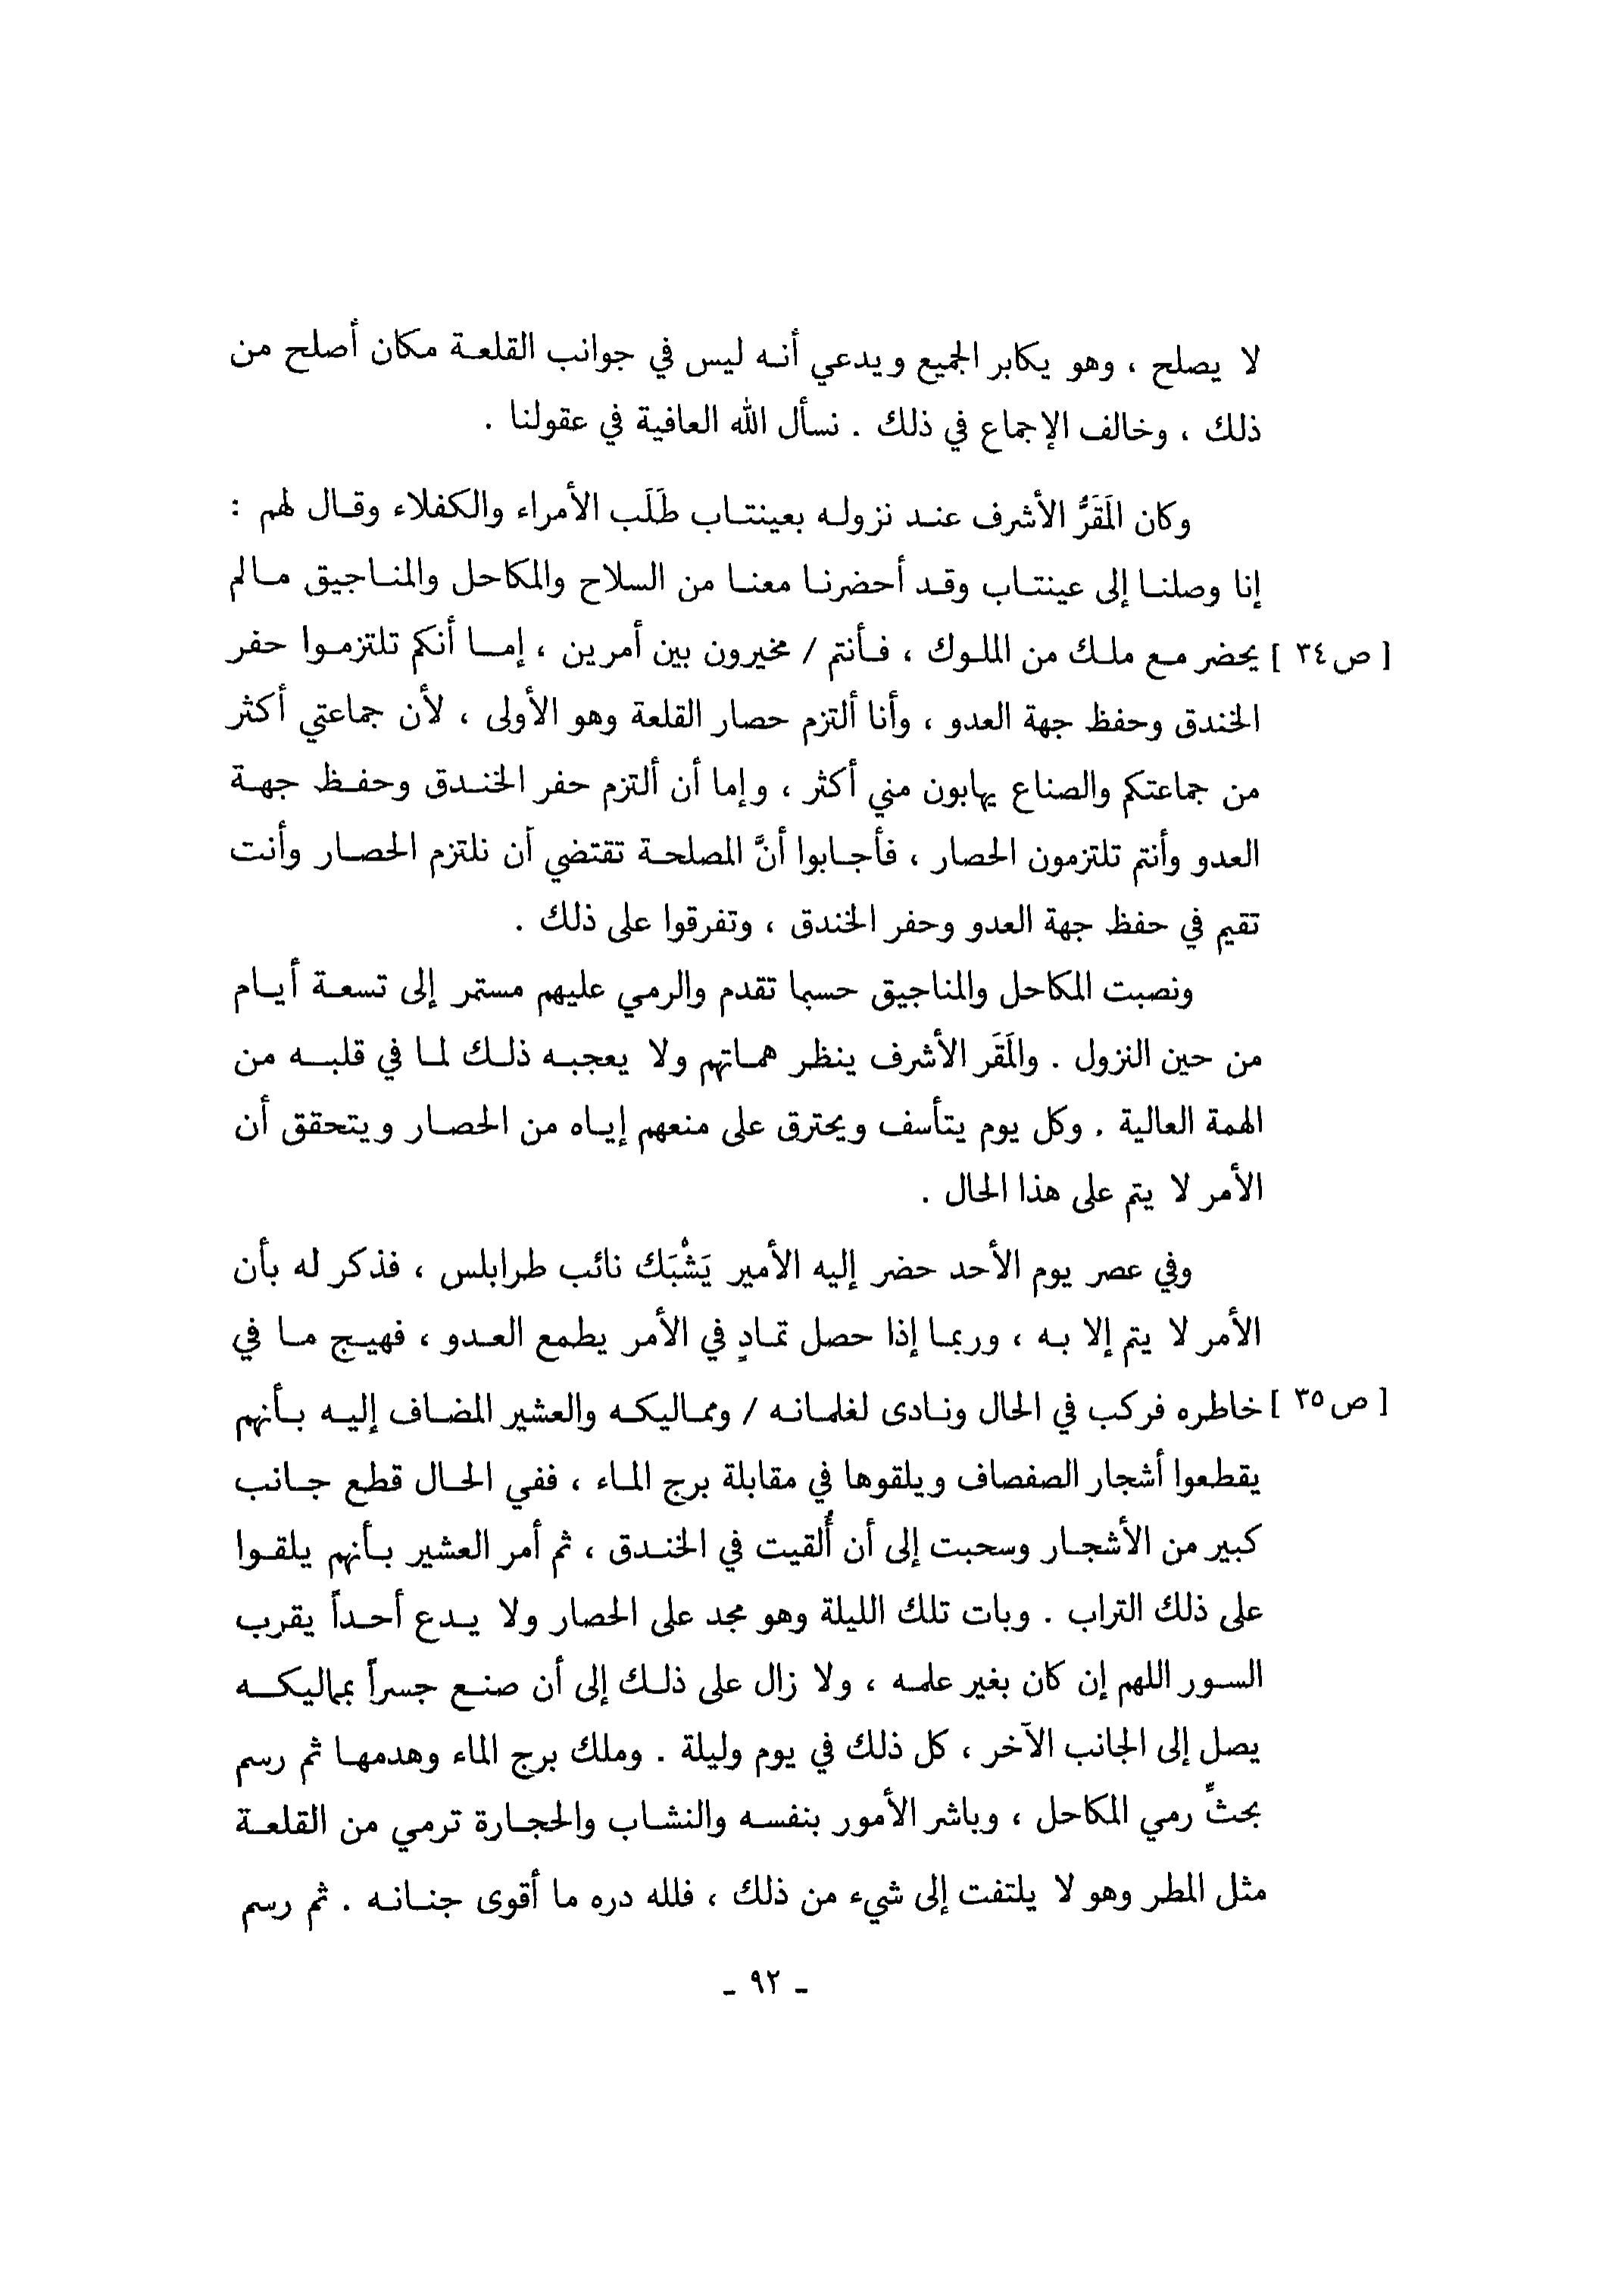 لا يصلح ، وهو يكابر الجميع ويدعي أنه ليس في جوانب القلعة مكان أصلح من
ذلك ، وخالف الإجماع في ذلك . نسأل الله العافية في عقولنا .
وكان المَقَرُّ الأشرف عند نزوله بعينتاب طَلَب الأمراء والكفلاء وقال لهم :
إنا وصلنا إلى عينتاب وقد أحضرنا معنا من السلاح والمكاحل والمناجيق مالم
[ ص ٣٤ ] يحضر مع ملك من الملوك ، فأنتم / مخيرون بين أمرين ، إما أنكم تلتزموا حفر
الخندق وحفظ جهة العدو ، وأنا ألتزم حصار القلعة وهو الأولى ، لأن جماعتي أكثر
من جماعتكم والصناع يهابون مني أكثر ، وإما أن ألتزم حفر الخندق وحفظ جهة
العدو وأنتم تلتزمون الحصار ، فأجابوا أنَّ المصلحة تقتضي أن نلتزم الحصار وأنت
تقيم في حفظ جهة العدو وحفر الخندق ، وتفرقوا على ذلك .
ونصبت المكاحل والمناجيق حسبما تقدم والرمي عليهم مستمر إلى تسعة أيام
من حين النزول . والمَقَر الأشرف ينظر هماتهم ولا يعجبه ذلك لما في قلبه من
الهمة العالية . وكل يوم يتأسف ويحترق على منعهم إياه من الحصار ويتحقق أن
الأمر لا يتم على هذا الحال .
وفي عصر يوم الأحد حضر إليه الأمير يَشْبَك نائب طرابلس ، فذكر له بأن
الأمر لا يتم إلا به ، وربما إذا حصل تمادٍ في الأمر يطمع العدو ، فهيج ما في
[ ص ٣٥ ] خاطره فركب في الحال ونادى لغلمانه / ومماليكه والعشير المضاف إليه بأنهم
يقطعوا أشجار الصفصاف ويلقوها في مقابلة برج الماء ، ففي الحال قطع جانب
كبير من الأشجار وسحبت إلى أن أُلقيت في الخندق ، ثم أمر العشير بأنهم يلقوا
على ذلك التراب . وبات تلك الليلة وهو مجد على الحصار ولا يدع أحداً يقرب
السور اللهم إن كان بغير علمه ، ولا زال على ذلك إلى أن صنع جسراً بمماليكه
يصل إلى الجانب الآخر ، كل ذلك في يوم وليلة . وملك برج الماء وهدمها ثم رسم
بحثِّ رمي المكاحل ، وباشر الأمور بنفسه والنشاب والحجارة ترمي من القلعة
مثل المطر وهو لا يلتفت إلى شيء من ذلك ، فلله دره ما أقوى جنانه . ثم رسم
- ٩٢ -